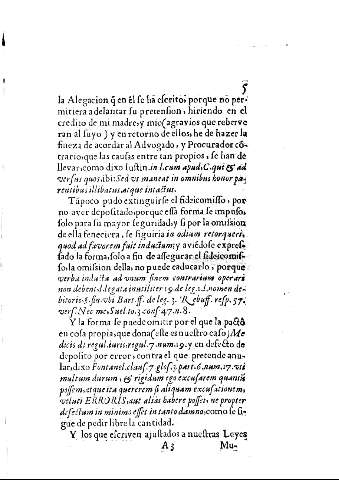 5
la Alegacion q̃ en èl se hā escrito; porque no per-
mitiera adelantar su pretension, hiriendo en el
credito de mi madre, y mio (agravios que reberve
ran al suyo) y en retorno de ellos, he de hazer la
fineza de acordar al Advogado, y Procurador cō-
trario, que las causas entre tan propios, se han de
llevar, como dixo Iustin. in l. cum apud, C. qui & ad
versus quos, ibi: Sed vt maneat in omnibus honor pa-
rentibus illibatus, atque intactus.
Tāpoco pudo extinguirse el fideicomisso, por
no aver depositado; porque essa forma se impuso,
solo para su mayor seguridad; y si por la omission
de ella feneciera, se siguiria in odium retorqueri,
quod ad favorem fuit inductum; y aviēdose expres-
sado la forma, solo a fin de assegurar el fideicomis-
so, la omission della, no puede caducarlo, porque
verba inducta ad vnum finem contrarium operari
non debent, d. legata inutiliter 19 de leg. 1. l. nomen de-
bitoris, §. fin. vbi Bart. ff. de leg. 3. Rebuff. resp. 37.
vers. Nec me, Suel. to. 3. cons. 47. n. 8.
Y la forma se puede omitir por el que la pactò
en cosa propia; que dona (este es nuestro caso) Me
dicis dt regul. iuris, regul. 7. num. 19. y en defecto de
deposito por error, contra el que pretende anu-
lar, dixo Fontanel. clauf. 7. glos. 3. part. 6. num. 17. vii
multum durum, & rigidum ego excusarem quantū
possem, etquita quererem si aliquam excusationem,
veluti ERRORIS, aut alias habere posset, ne propter
defectum in minimo esset in tanto damno; como se si-
gue de pedir libre la cantidad.
Y los que escriven ajustados a nuestras Leyes
A 3 Mu-